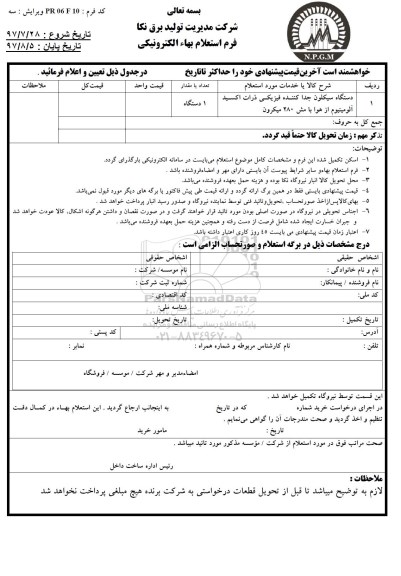 بسمه تعالی
کد فرم : PR 06 F 10 ویرایش : سه
شرکت مدیریت تولید برق نکا
فرم استعلام بهاء الکترونیکی
تاریخ شروع : ۹۷/۷/۲۸
تاریخ پایان : ۹۷/۸/۵
N.P.G.M
خواهشمند است آخرین قیمت پیشنهادی خود را حداکثر تا تاریخ درجدول ذیل تعیین و اعلام فرمائید .
ردیف شرح کالا یا خدمات مورد استعلام تعداد یا مقدار قیمت واحد قیمت کل ملاحظات
۱ دستگاه سیکلون جدا کننده فیزیکی ذرات اکسید آلومینیوم از هوا با مش ۲۸۰ میکرون ۱ دستگاه
جمع کل به حروف:
تذکر مهم : زمان تحویل کالا حتماً قید گردد.
توضیحات:
۱- اسکن تکمیل شده این فرم و مشخصات کامل موضوع استعلام می‌بایست در سامانه الکترونیکی بارگذاری گردد.
۲- فرم استعلام بهاءو سایر شرایط پیوست آن بایستی دارای مهر و امضاءفروشنده باشد .
۳- محل تحویل کالا انبار نیروگاه نکا بوده و هزینه حمل بعهده فروشنده می‌باشد.
۴- قیمت پیشنهادی بایستی فقط در همین برگ ارائه گردد و ارائه قیمت طی پیش فاکتور یا برگه های دیگر مورد قبول نمی‌باشد.
۵- بهای کالاپس‌ازاخذ صورتحساب ،تحویل‌وتائید فنی توسط نماینده نیروگاه و صدور رسید انبار پرداخت خواهد شد .
۶- اجناس تحویلی در نیروگاه در صورت اصلی بودن مورد تائید قرار خواهند گرفت و در صورت نقصان و داشتن هرگونه اشکال، کالا عودت خواهد شد
و جبران خسارت ایجاد شده شامل فرصت از دست رفته و همچنین هزینه حمل بعهده فروشنده می‌باشد .
۷- اعتبار زمان قیمت پیشنهادی می بایست ٤٥ روز کاری اعتبار داشته باشد.
درج مشخصات ذیل در برگه استعلام و صورتحساب الزامی است :
اشخاص حقیقی اشخاص حقوقی
نام و نام خانوادگی : نام موسسه/ شرکت :
نام فروشنده / پیمانکار: شماره ثبت شرکت :
کد ملی: کد اقتصادی :
شناسه ملی:
تاریخ تکمیل : تاریخ تحویل:
آدرس: کد پستی :
تلفن : نام کارشناس مربوطه و شماره همراه : نمابر :
امضاءمدیر و مهر شرکت / موسسه / فروشگاه
ParsNamadData
۰۲۱-۸۸۳۴۹۶۷۰-۵
این قسمت توسط نیروگاه تکمیل خواهد شد .
در اجرای درخواست خرید شماره که در تاریخ به اینجانب ارجاع گردید . این استعلام بهاء در کمال دقت
تنظیم و اخذ گردید و صحت مندرجات آن را گواهی می‌نمایم .
مامور خرید
صحت مراتب فوق در مورد استعلام از شرکت / مؤسسه مذکور مورد تائید میباشد .
رئیس اداره ساخت داخل
ملاحظات :
لازم به توضیح میباشد تا قبل از تحویل قطعات درخواستی به شرکت برنده هیچ مبلغی پرداخت نخواهد شد